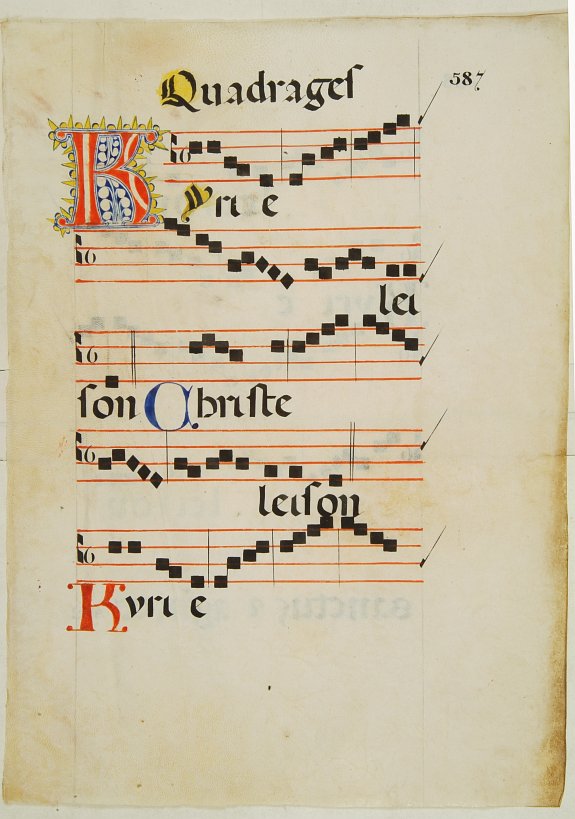 Quadrageſ 587
Kyri e
lei
ſon Chriſte
leiſon
Kyri e